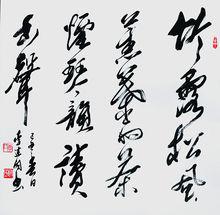 竹露松風
蕉葉雨茶
煙琴韻讀
書聲
己丑春日